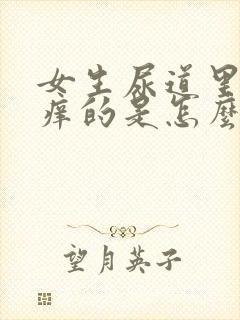 女生尿道里
痒的是怎麽
望月英子